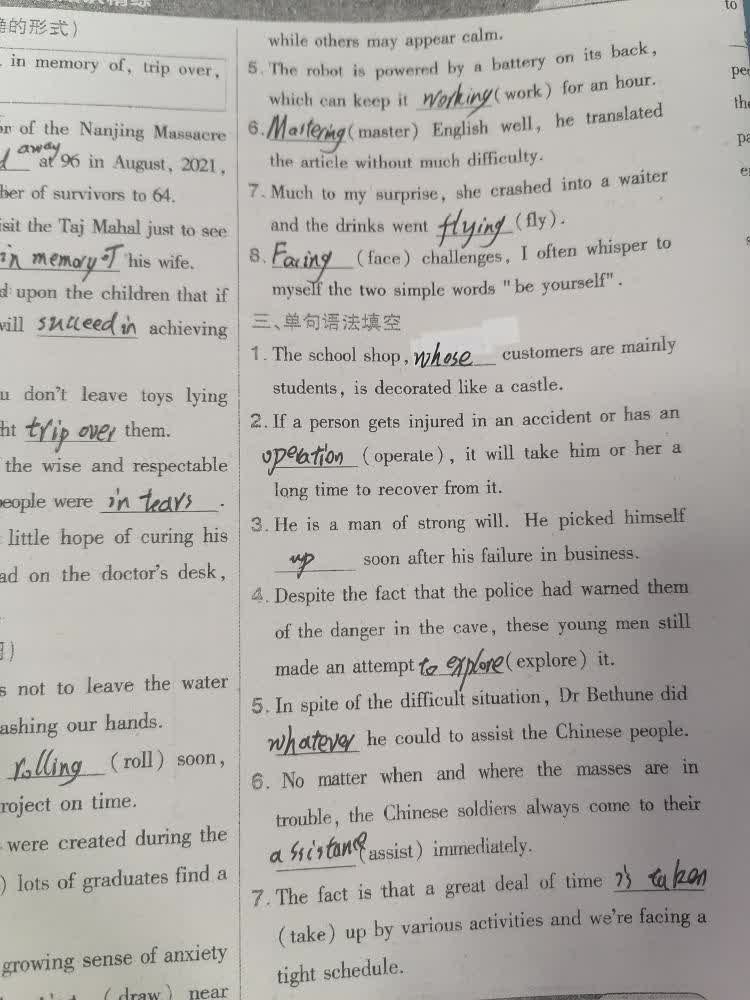 确的形式)
in memory of, trip over,
or of the Nanjing Massacre
away
at 96 in August, 2021,
ber of survivors to 64.
isit the Taj Mahal just to see
in memory of his wife.
d upon the children that if
will succeed in achieving
u don't leave toys lying
ht trip over them.
the wise and respectable
people were in tears.
little hope of curing his
ad on the doctor's desk,
s not to leave the water
ashing our hands.
rolling (roll) soon,
roject on time.
were created during the
) lots of graduates find a
growing sense of anxiety
(draw) near
while others may appear calm.
5. The robot is powered by a battery on its back,
which can keep it working (work) for an hour.
6. Mastering (master) English well, he translated
the article without much difficulty.
7. Much to my surprise, she crashed into a waiter
and the drinks went flying (fly).
8. Facing (face) challenges, I often whisper to
myself the two simple words "be yourself".
三、单句语法填空
1. The school shop, whose customers are mainly
students, is decorated like a castle.
2. If a person gets injured in an accident or has an
operation (operate), it will take him or her a
long time to recover from it.
3. He is a man of strong will. He picked himself
up soon after his failure in business.
4. Despite the fact that the police had warned them
of the danger in the cave, these young men still
made an attempt to explore (explore) it.
5. In spite of the difficult situation, Dr Bethune did
whatever he could to assist the Chinese people.
6. No matter when and where the masses are in
trouble, the Chinese soldiers always come to their
assistance (assist) immediately.
7. The fact is that a great deal of time is taken
(take) up by various activities and we're facing a
tight schedule.
to